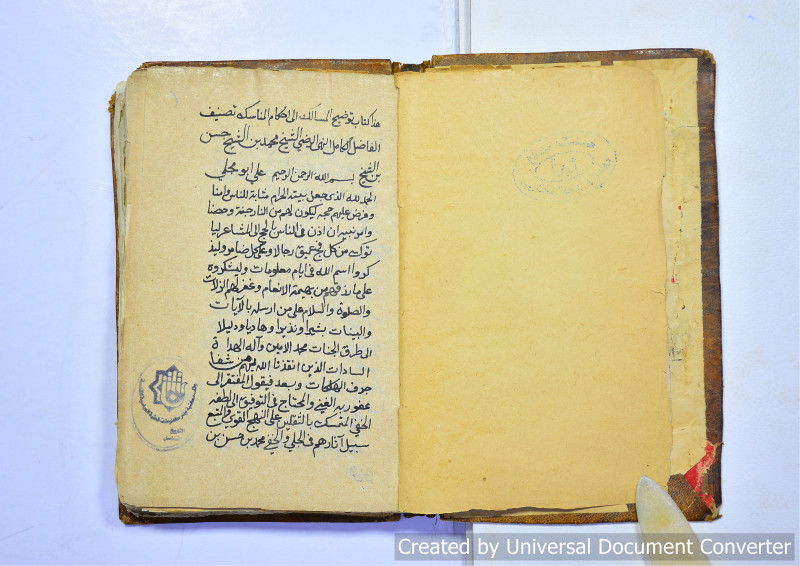 هذا كتاب توضيح المسالك الى احكام المناسك تصنيف
الفاضل الكامل الشيخ محمد بن الشيخ حسن
بن الشيخ علي ابو مجلي
بسم الله الرحمن الرحيم
الحمد لله الذي جعل بيته الحرام مثابة للناس وامنا
وفرض عليهم حجه ليكون لهم من النار جنة وحصنا
وامر نبيه ان اذن في الناس بالحج الى المشاعر ليا
توك من كل فج عميق رجالا وعلى كل ضامر وليذ
كروا اسم الله في ايام معلومات وليشكروه
على ما رزقهم من بهيمة الانعام وغفر لهم الزلات
والصلوة والسلام على من ارسله بالآيات
والبينات بشيرا ونذيرا وهاديا ودليلا
الى طرق الجنات محمد الامين وآله الهداة
السادات الذين انقذنا الله بهم من شفا
جرف الهلكات وبعد فيقول المفتقر الى
عفو ربه الغني والمحتاج في التوفيق الى لطفه
الخفي المتمسك بالثقلين على النهج القوي والمتبع
سبيل آثارهم في الجلي والخفي محمد بن حسن بن
Created by Universal Document Converter